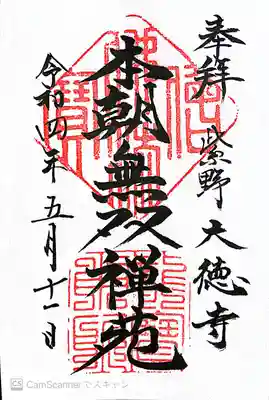 奉拝 紫野 大徳寺
本朝無双禅苑
令和四年五月十一日
CS CamScanner でスキャン